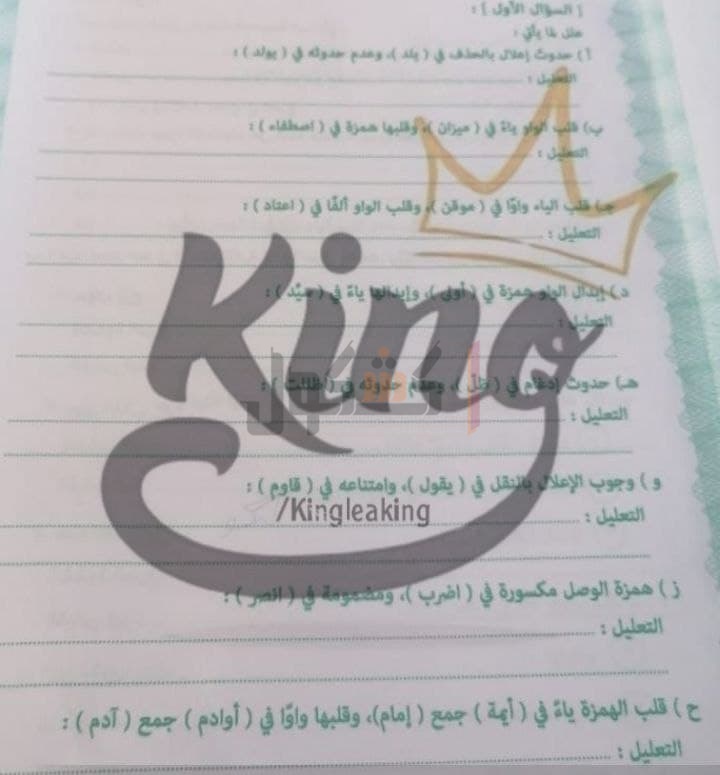 [ السؤال الأول ] :
علل لما يأتي :
أ ) حدوث إعلال بالحذف في ( يلد )، وعدم حدوثه في ( يولد ) :
التعليل :
ب) قلب الواو ياءً في ( ميزان )، وقلبها همزة في ( اصطفاء ) :
التعليل :
جـ) قلب الياء واوًا في ( موقن )، وقلب الواو ألفًا في ( اعتاد ) :
التعليل :
د ) إبدال الواو همزة في ( أولى )، وإبدالها ياءً في ( سيّد ) :
التعليل :
King
هـ) حدوث إدغام في ( ظلّ )، وعدم حدوثه في ( ظللت ) :
التعليل :
و ) وجوب الإعلال بالنقل في ( يقول )، وامتناعه في ( قاوم ) :
/Kingleaking
التعليل :
ز ) همزة الوصل مكسورة في ( اضرب )، ومضمومة في ( انصر ) :
التعليل :
ح ) قلب الهمزة ياءً في ( أيمة ) جمع ( إمام)، وقلبها واوًا في ( أوادم ) جمع ( آدم ) :
التعليل :